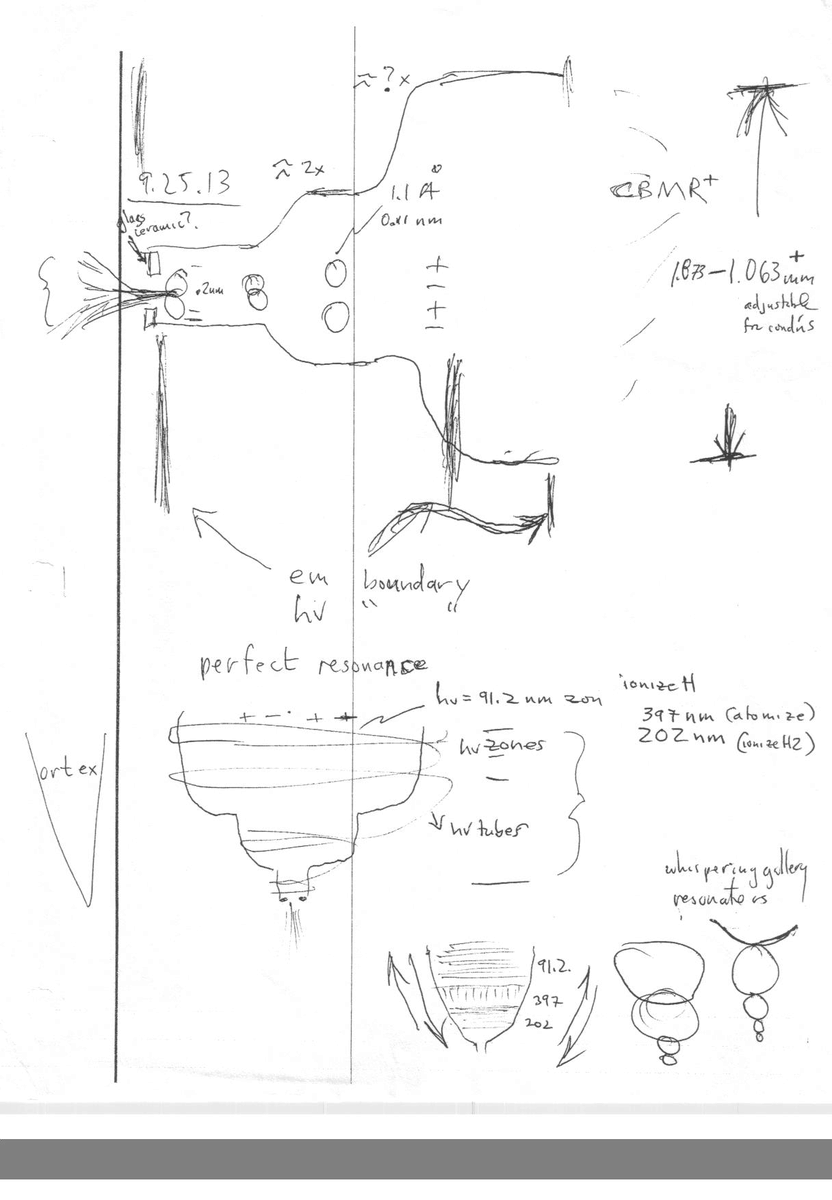 ≈ ? x
9.25.13
≈ 2x
1.1 Å
0.11 nm
glass
ceramic?
.2nm
+
−
+
−
CBMR+
1.873 – 1.063+ mm
adjustable
for cond'ns
em "boundary"
hν
perfect resonance
+ − · + +
hν = 91.2 nm zon
ionize H
397 nm (atomize)
202 nm (ionize H2)
hν zones
hν tubes
Vortex
whispering gallery
resonators
91.2.
397
202